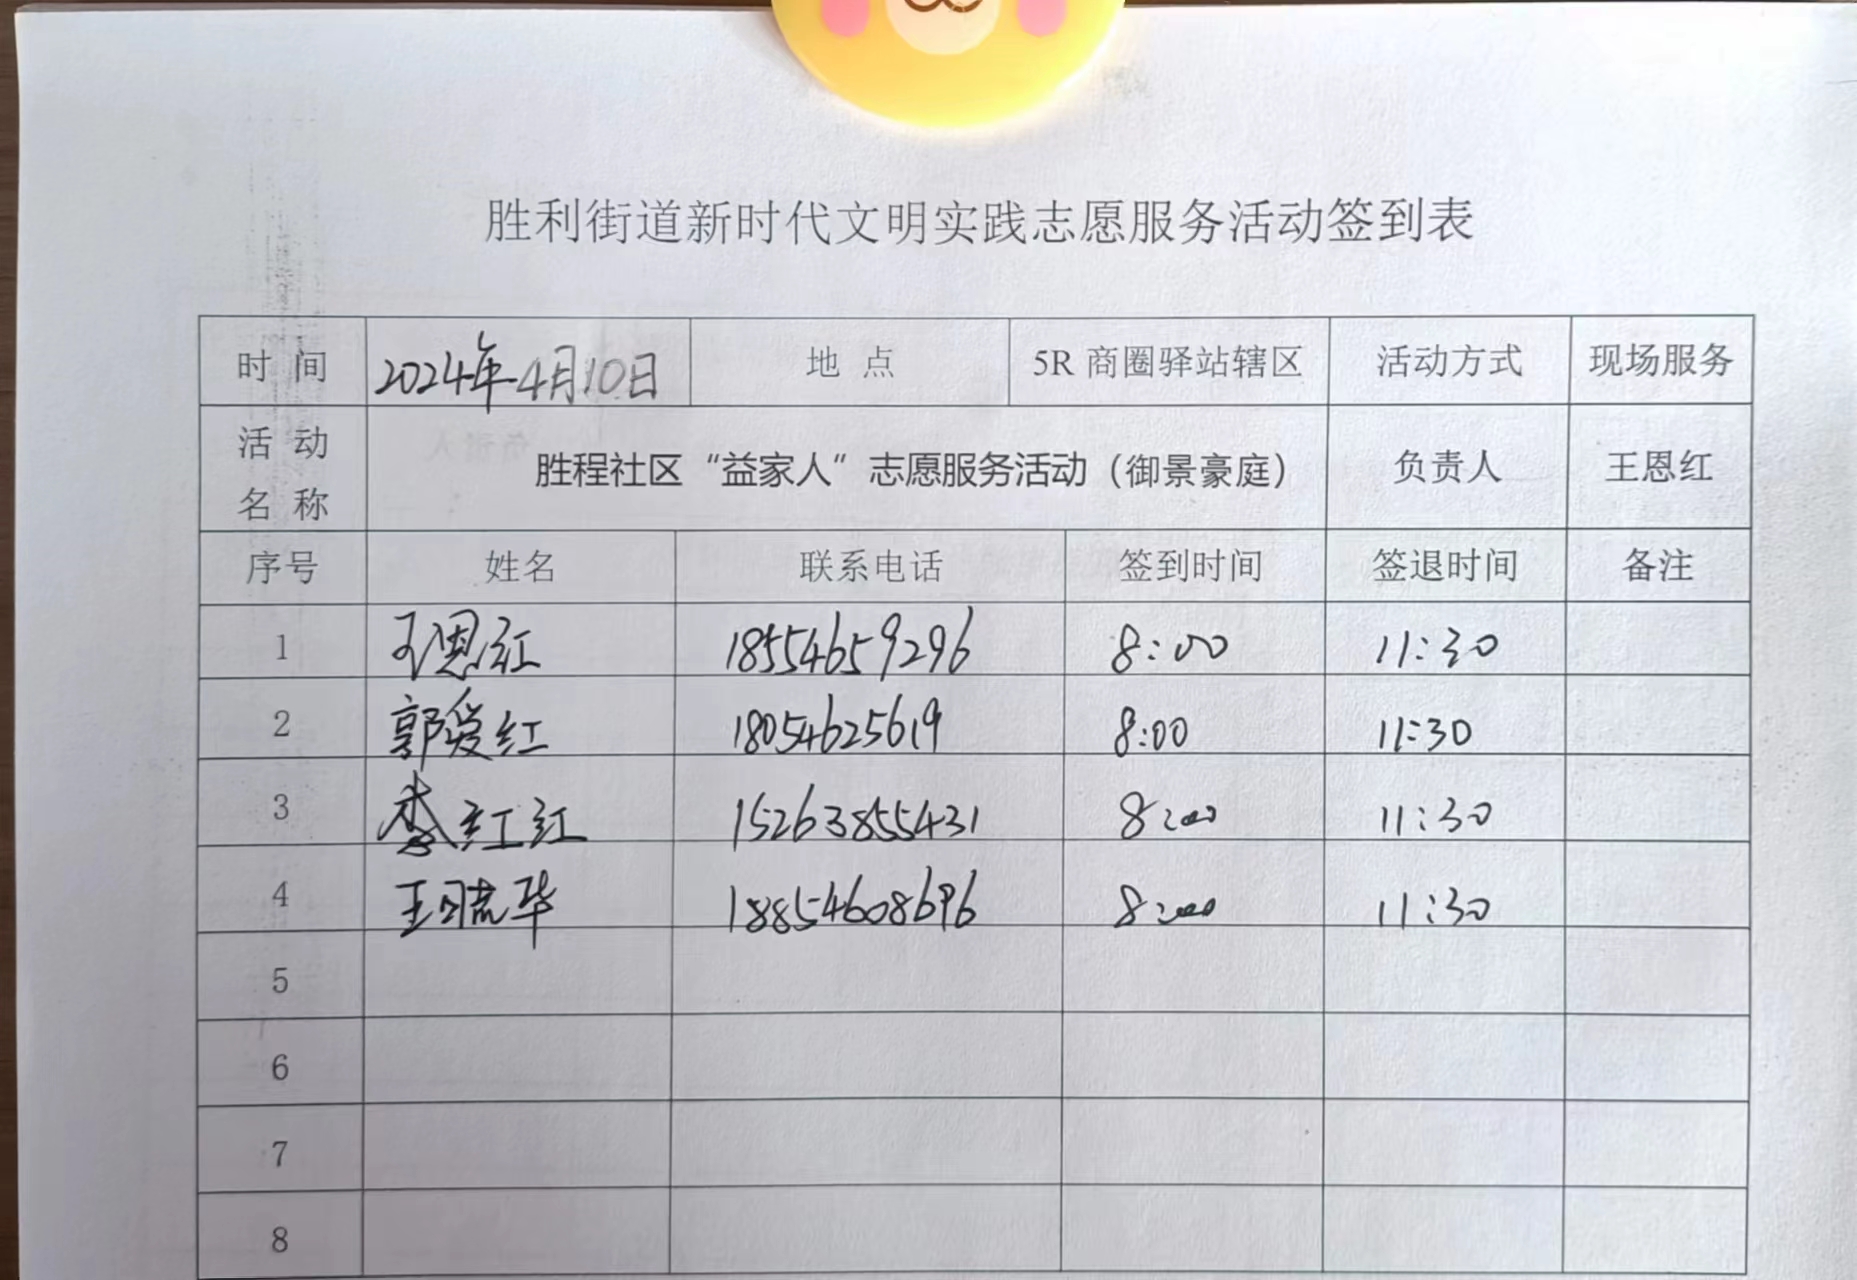 胜利街道新时代文明实践志愿服务活动签到表
时 间 2024年4月10日 地 点 5R 商圈驿站辖区 活动方式 现场服务
活 动 名 称 胜程社区“益家人”志愿服务活动（御景豪庭） 负责人 王恩红
序号 姓名 联系电话 签到时间 签退时间 备注
1 王恩红 18554659296 8:00 11:30
2 郭爱红 18054625619 8:00 11:30
3 李红红 15263855431 8:00 11:30
4 王晓华 18854608696 8:00 11:30
5
6
7
8